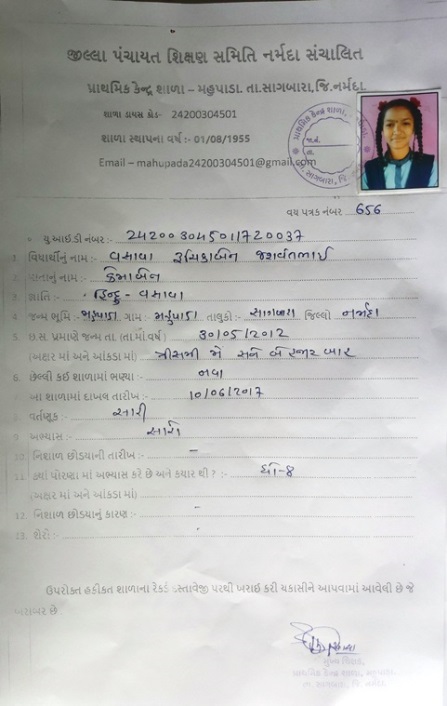 જીલ્લા પંચાયત શિક્ષણ સમિતિ નર્મદા સંચાલિત
પ્રાથમિક કેન્દ્ર શાળા – મહુપાડા. તા.સાગબારા,જિ.નર્મદા
શાળા ડાયસ કોડ- 24200304501
શાળા સ્થાપના વર્ષ :- 01/08/1955
Email – mahupada24200304501@gmail.com
વય પત્રક નંબર 656
યુ.આઇ.ડી નંબર :- 242003045011720037
1. વિદ્યાર્થીનું નામ :- વસાવા જશવંતભાઈ
2. માતાનું નામ :-
3. જાતિ :- હિન્દુ - વસાવા
4. જન્મ ભૂમિ :- મહુપાડા ગામ:- મહુપાડા તાલુકો:- સાગબારા જિલ્લો નર્મદા
5. જ.ર. પ્રમાણે જન્મ તા. (તા.મો.વર્ષ) 30/05/2012
(અક્ષર માં અને આંકડા માં) ત્રીસમી મે સને બે હજાર બાર
6. છેલ્લી કઈ શાળામાં ભણ્યા :- નવા
7. આ શાળામાં દાખલ તારીખ :- 10/06/2017
8. વર્તણૂક :- સારી
9. અભ્યાસ :- સારો
10. નિશાળ છોડયાની તારીખ :- –
11. ક્યાં ધોરણ માં અભ્યાસ કરે છે અને કયાર થી ? :- ધો-8
(અક્ષર માં અને આંકડા માં)
12. નિશાળ છોડયાનું કારણ :- -
13. શેરો :- -
ઉપરોક્ત હકીકત શાળાના રેકર્ડ દસ્તાવેજી પરથી ખરાઈ કરી ચકાસીને આપવામાં આવેલી છે જે
બરાબર છે